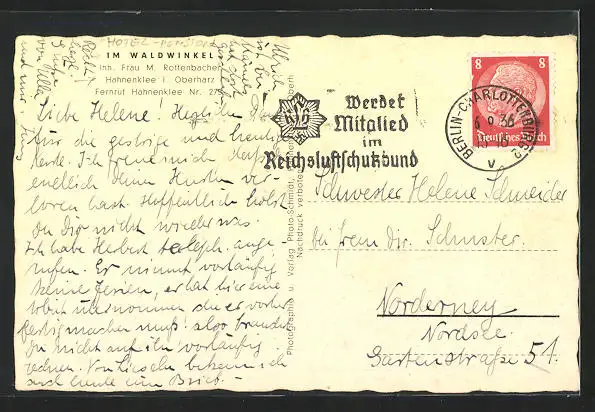 HOTEL-PENSION
IM WALDWINKEL
Inh. Frau M. Rottenbacher
Hahnenklee i. Oberharz
Fernruf Hahnenklee Nr. 27
Liebe Helene! Herzlichen
für die gestrige und heutige
Karte. Ich freue mich, daß
endlich deinen Husten ver-
loren hast. Hoffentlich holst
Du Dir nicht wieder was.
Ich habe Herbert teleph. ange-
rufen. Er nimmt vorläufig
keine Ferien, er hat hier eine
Arbeit übernommen die er vorher
fertig machen muß! also brauchst
Du nicht auf ihn vorläufig
rechnen. Von Lieschen bekam ich
auch heute einen Brief.
Photographie u. Verlag Photo-Schmidt,
Nachdruck verboten
Werdet
Mitglied
im
Reichsluftschutzbund
8 8
Deutsches Reich
BERLIN-CHARLOTTENBURG 2
9.36
v
Schwester Helene Schneider
bei Frau Dir. Schuster.
Norderney
Nordsee.
Gartenstraße 51.